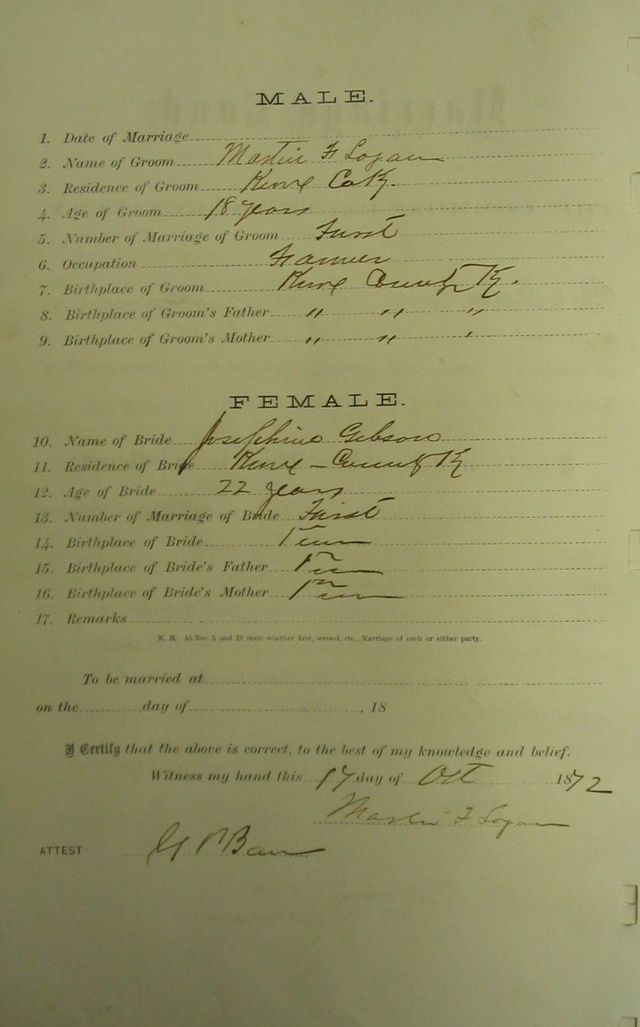 MALE.
1. Date of Marriage
2. Name of Groom Martin F Logan
3. Residence of Groom Knox Co Ky.
4. Age of Groom 18 years
5. Number of Marriage of Groom First
6. Occupation Farmer
7. Birthplace of Groom Knox County Ky.
8. Birthplace of Groom's Father " " "
9. Birthplace of Groom's Mother " " "
FEMALE.
10. Name of Bride Josephine Gibson
11. Residence of Bride Knox - County Ky
12. Age of Bride 22 years
13. Number of Marriage of Bride First
14. Birthplace of Bride Tenn
15. Birthplace of Bride's Father Tenn
16. Birthplace of Bride's Mother Tenn
17. Remarks
N. B. At Nos. 5 and 13 state whether first, second, etc., Marriage of each or either party.
To be married at
on the day of , 18
I Certify that the above is correct, to the best of my knowledge and belief.
Witness my hand this 17 day of Oct 1872
Martin F Logan
ATTEST